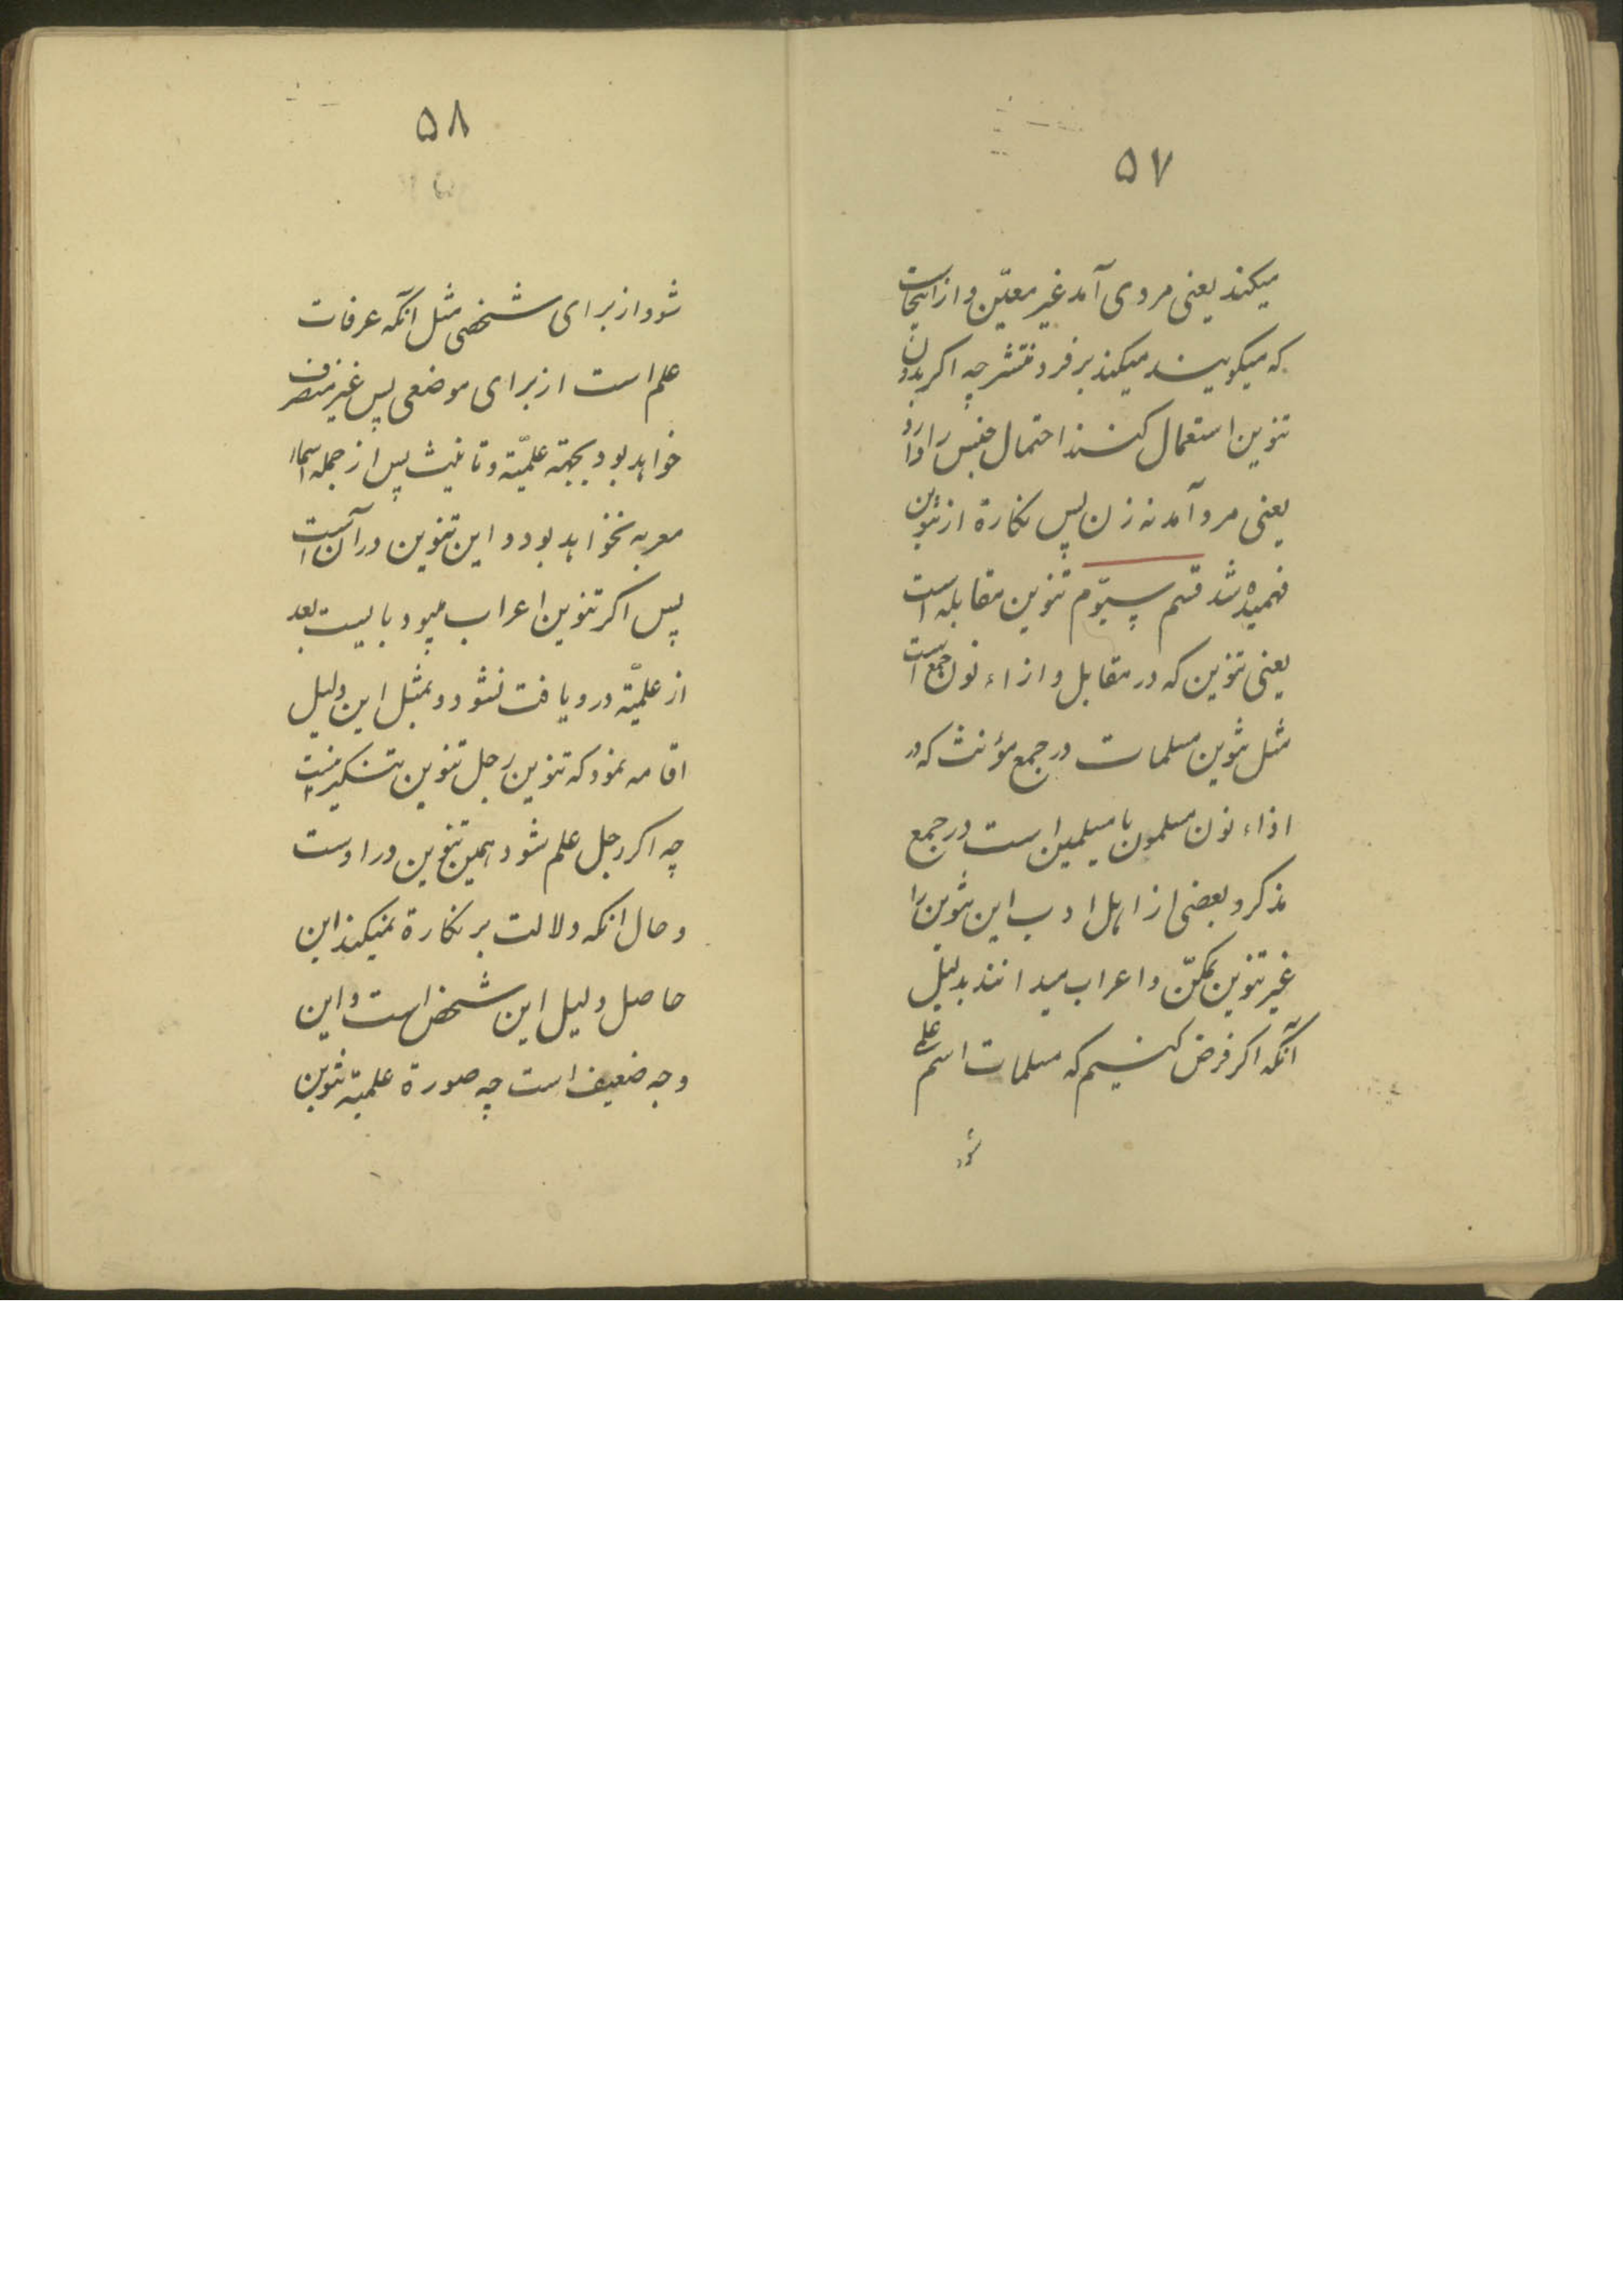 ۵۷
میکند یعنی مردی آمد غیر معیّن و از اینجاست
که میکویند میکند بر فرد منتشر چه اکر بدون
تنوین استعمال کنند احتمال جنس را دارد
یعنی مرد آمد نه زن پس نکارة از تنوین
فهمیده شد قسم سیّوم تنوین مقابله است
یعنی تنوین که در مقابل و ازاء نون جمع است
مثل تنوین مسلمات در جمع مؤنث که در
ازاء نون مسلمون یا مسلمین است در جمع
مذکر و بعضی از اهل ادب این تنوین را
غیر تنوین تمکّن و اعراب میدانند بدلیل
آنکه اکر فرض کنیم که مسلمات اسم علم
شود
۵۸
شود از برای شخصی مثل آنکه عرفات
علم است از برای موضعی پس غیر منصرف
خواهد بود بجهة علمیّة و تانیث پس از جمله اسماء
معربه نخواهد بود و این تنوین در آن است
پس اکر تنوین اعراب میبود بایست بعد
از علمیّة در و یافت نشود و بمثل این دلیل
اقامه نمود که تنوین رجل تنوین تنکیر نیست
چه اکر رجل علم شود همین تنوین در اوست
و حال انکه دلالت بر نکارة نمیکند این
حاصل دلیل این شخص است و این
وجه ضعیف است چه صورة علمیة تنوین